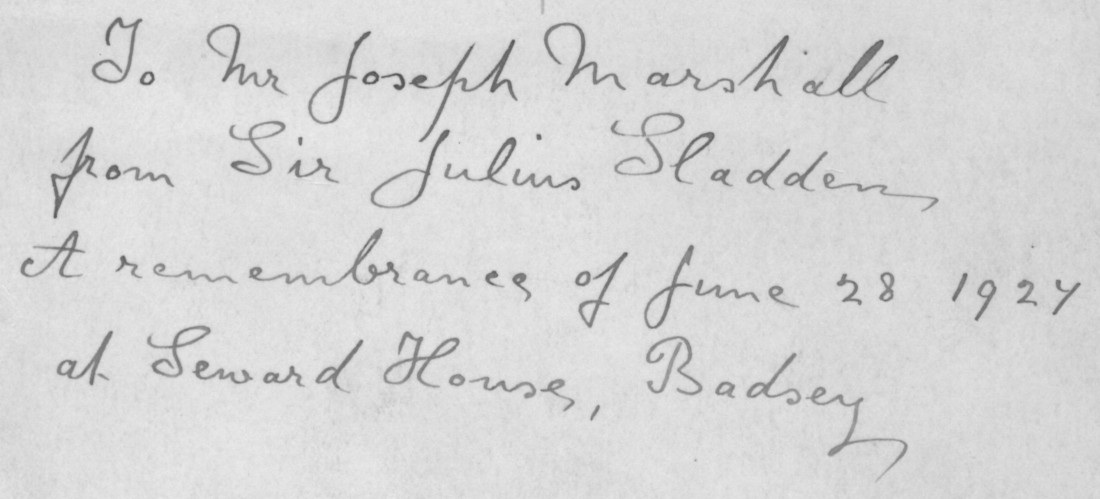 To Mr Joseph Marshall
from Sir Julius Sladden
A remembrance of June 28 1927
at Seward House, Badsey